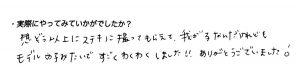 ・実際にやってみていかがでしたか?
想像以上にステキに撮ってもらえて、我がるなんだけれども
モデルのきみたいで すごくわくわくしました!! ありがとうございました!